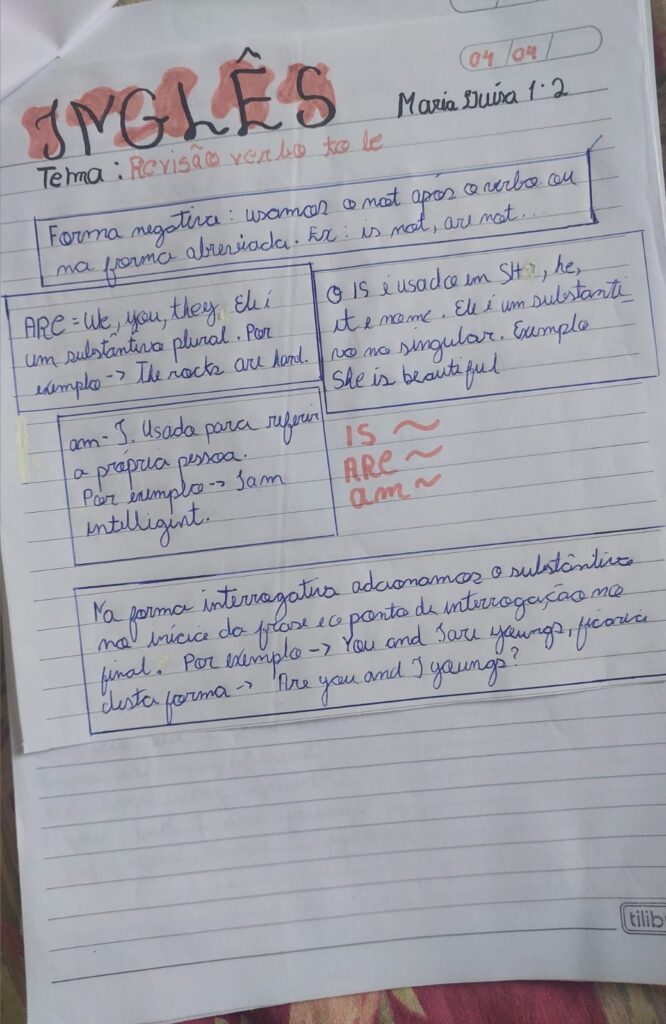 04/04/
INGLÊS
Maria Luísa 1.2
Tema: Revisão verbo to be
Forma negativa: usamos o not após o verbo ou
na forma abreviada. Ex: is not, are not...
ARE = We, you, they. Ele é
um substântivo plural. Por
exemplo -> The rocks are hard.
O IS é usado em SHe, he,
it e nome. Ele é um substanti_
vo no singular. Exemplo
She is beautiful
am - I. Usada para referir
a própria pessoa.
Por exemplo -> I am
intelligent.
IS ~
ARE ~
am ~
Na forma interrogativa adcionamos o substântivo
no início da frase e o ponto de interrogação no
final. Por exemplo -> You and I are youngs, ficaria
desta forma -> Are you and I youngs?
tilib